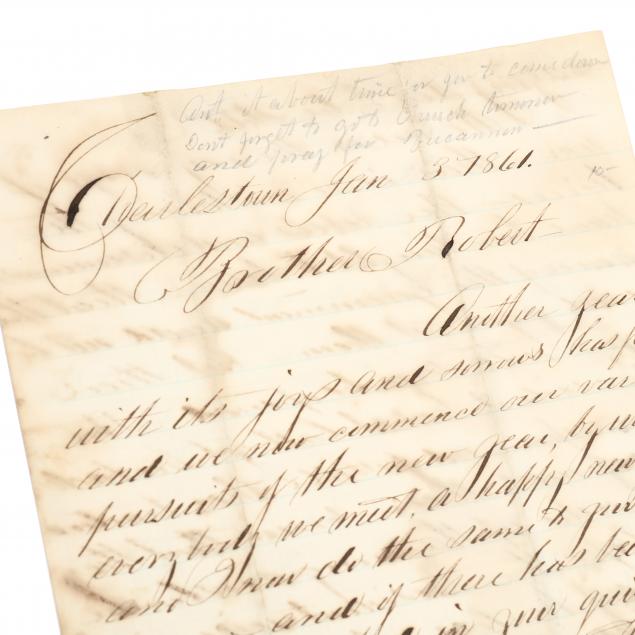 Ant it about time for you to come down
Dont forget to go to Church tomorrow
and pray for Bucannon —
Charlestown Jan 3 1861.
10-
Brother Robert
Another year
with its joys and sorrows has
and we now commence our var
pursuits of the new year, by
everybody we meet, a happy new
and I now do the same to you
and if there has be
in your